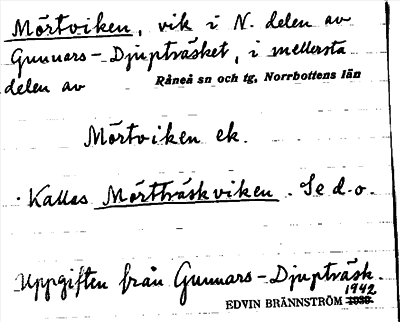 Mörtviken, vik i N. delen av
Gunnars-Djupträsket, i mellersta
delen av Råneå sn och tg, Norrbottens län
Mörtviken ek.
Kallas Mörtträskviken. Se d.o.
Uppgiften från Gunnars-Djupträsk.
1942
EDVIN BRÄNNSTRÖM 1939.